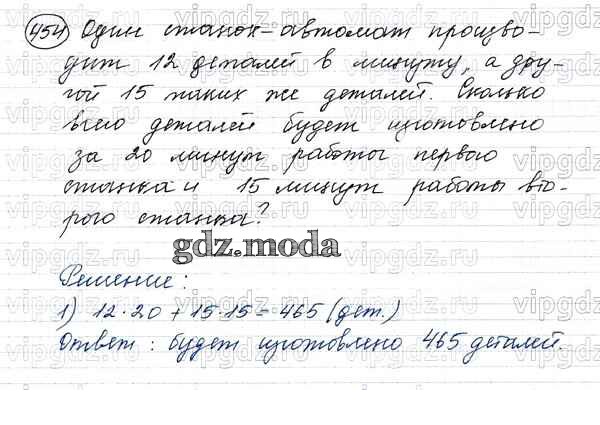 454 Один станок-автомат произво-
дит 12 деталей в минуту, а дру-
гой 15 таких же деталей. Сколько
всего деталей будет изготовлено
за 20 минут работы первого
станка и 15 минут работы вто-
рого станка?
gdz.moda
Решение:
1) 12·20 + 15·15 = 465 (дет.)
Ответ: будет изготовлено 465 деталей.